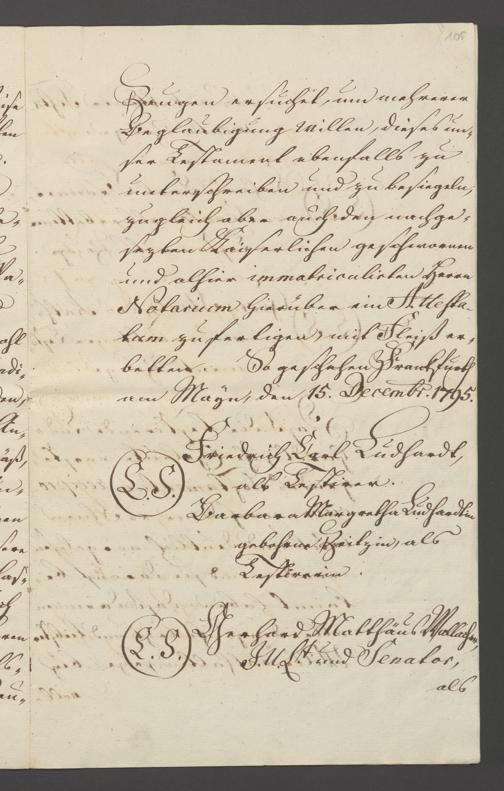 108
Zeugen ersuchet, um mehrerer
Beglaubigung willen, dieses un-
ser Testament ebenfalls zu
unterschreiben und zu besiegeln,
zugleich aber auch den nachge-
sezten Kayserlichen geschwornen
und alhier immatriculirten Herrn
Notarium hierüber ein Attesta-
tum zu fertigen, mit Fleiß er-
betten. So geschehen Frankfurth
am Mayn, den 15. Decembr. 1795.
Friedrich Carl Ludhardt,
(L.S.) als Testirer.
Barbara Margretha Ludhardtin
gebohrne, als
Testirerin.
(L.S.) Gerhard Matthäus Wallacher,
J.U.Lt. und Senator,
als